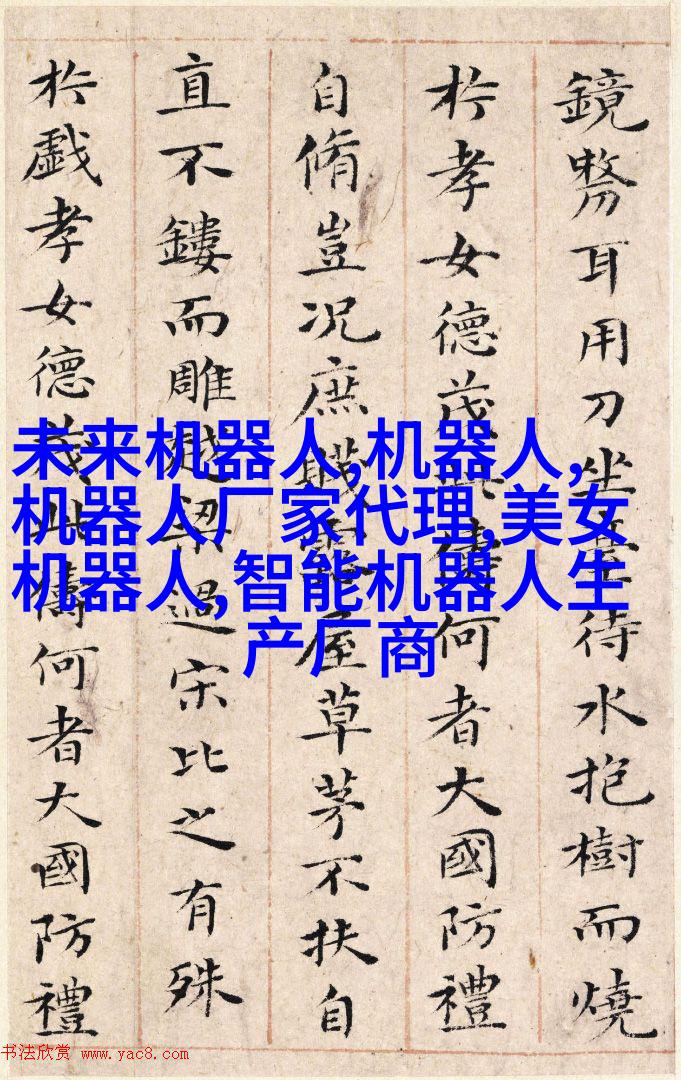 鏡剺耳用刀坐臺待水抱樹而燒
於孝女德茂此儔何者大國防禮
自脩豈況庶賤露屋草茅不扶自
直不鏤而雕越梁過宋比之有殊
於戲孝女德茂此儔何者大國防禮
未来机器人,机器人,
机器人厂家代理,美女
机器人,智能机器人生
产厂商
书法欣赏 www.yac8.com